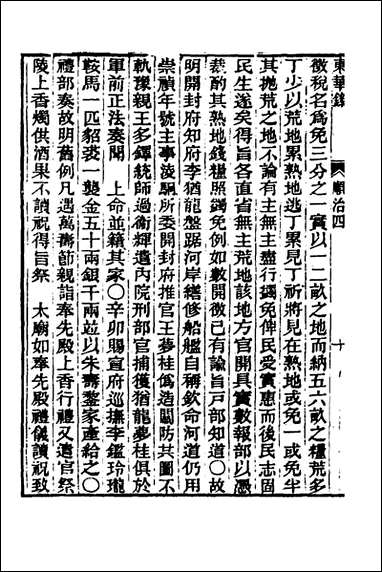 東華錄 順治四 十
徵稅名爲免三分之一實以一二畝之地而納五六畝之糧荒多
丁少以荒地累熟地逃丁累見丁祈將見在熟地或免一或免半
其拋荒之地不論有主無主盡行蠲免俾民受實惠而後民志固
民生遂矣得旨各直省無主荒地該地方官開具實數報部以憑
裁酌其熟地錢糧照蠲免例如數開徵已有諭旨戸部知道○故
明開封府知府李猶龍盤踞河岸繕修船艦自稱欽命河道仍用
崇禎年號主事凌駉所委開封府推官王夢桂僞造關防其圖不
軌豫親王多鐸統師過衞輝遣內院刑部官捕獲猶龍夢桂俱於
軍前正法奏聞 上命並籍其家○辛卯賜宣府巡撫李鑑玲瓏
鞍馬一匹貂裘一襲金五十兩銀千兩並以朱壽鋆家產給之○
禮部奏故明舊例凡遇萬壽節親詣奉先殿上香行禮又遣官祭
陵上香燭供酒果不讀祝得旨祭 太廟如奉先殿禮儀讀祝致